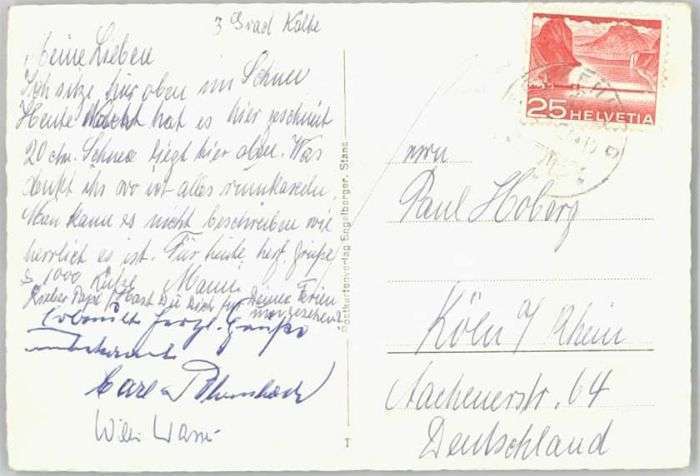 3 Grad Kälte
Meine Lieben
Ich sitze hier oben im Schnee
Heute Nacht hat es hier geschneit
20 cm. Schnee liegt hier oben. Was
denkt ihr wo ist alles
Man kann es nicht beschreiben wie
herrlich es ist. Für heute herzl. Grüße
& 1000 Küsse Mami
Lieber Papi! Hast Du Dich für Deine Ferien
vorgesehen?
herzl. Grüße
unbekannt
Carl
Willi
Postkartenverlag Engelberger, Stans
T
25 HELVETIA
Herrn
Paul Hoberg
Köln / Rhein
Aachenerstr. 64
Deutschland